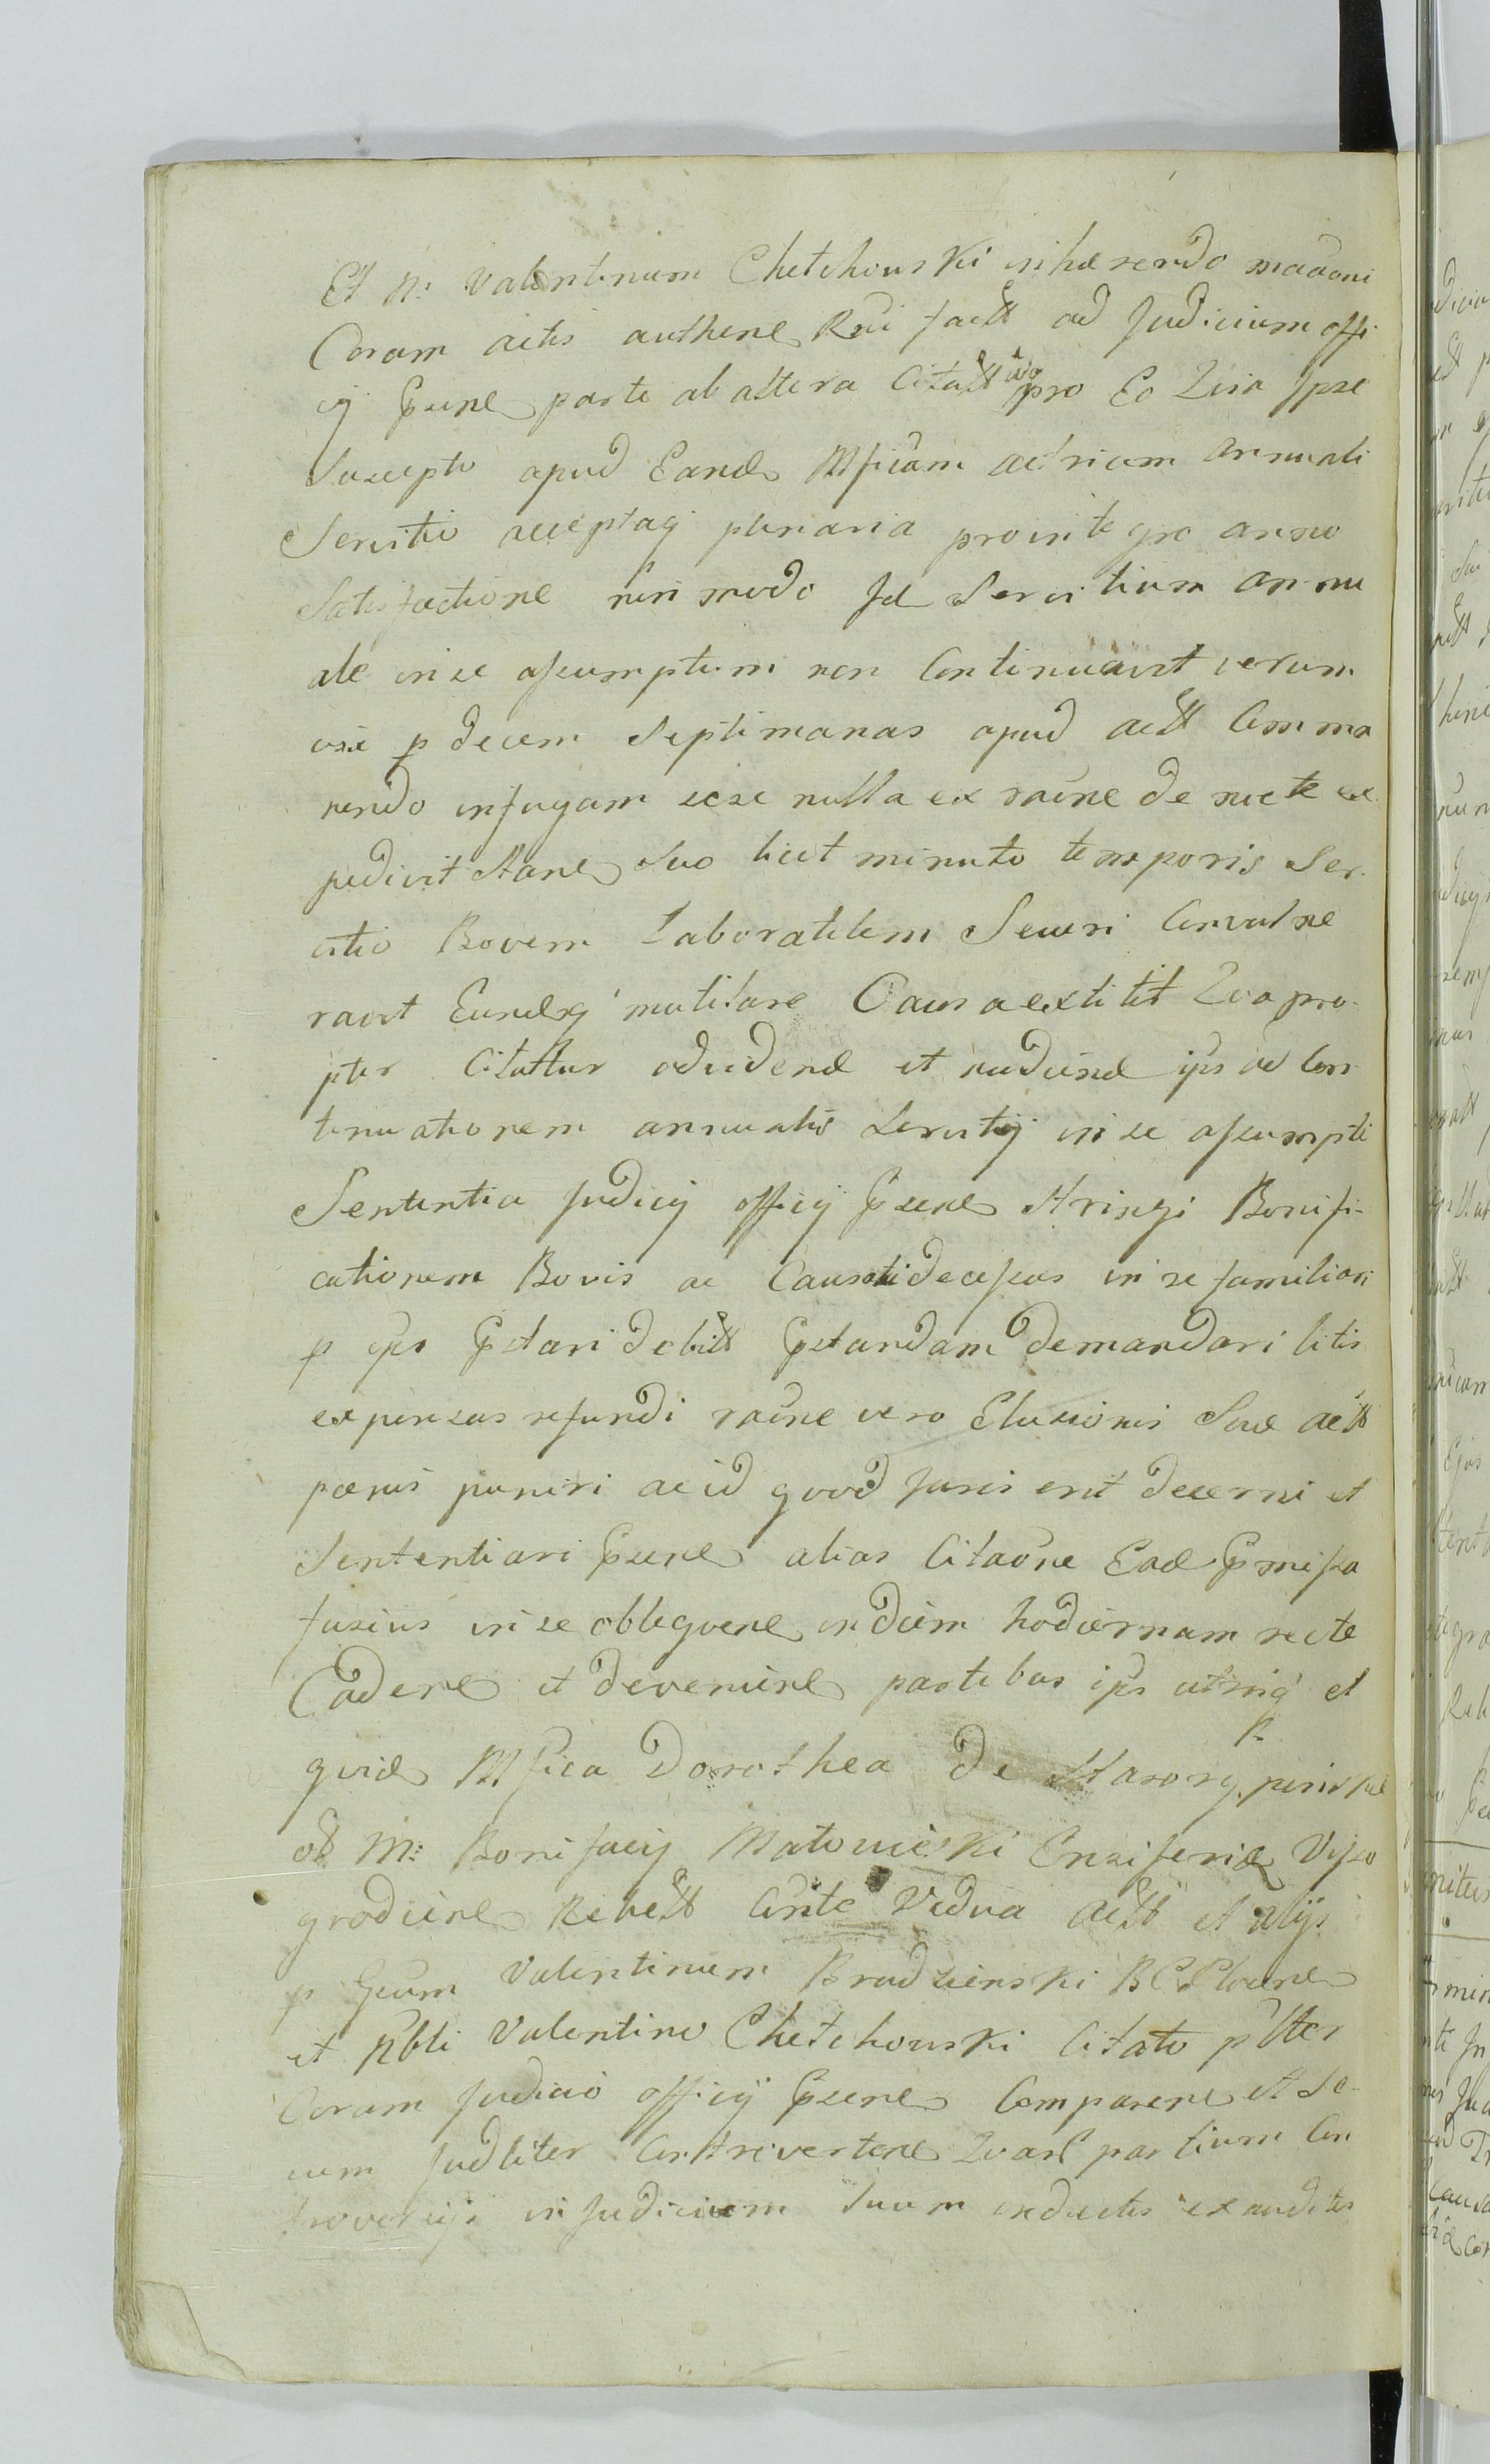 Et N: Valentinum Chetchowski inhærendo maāoni
Coram actis authene Rni factt ad Judicium offi
cij Pсune parte ab altera Citatt ideo pro Eo Quia Ipse
Suscepto apud Eande Mficam actricem annuali
Servitio acceptaq plenaria pro integro anno
Satisfactione non modo Id Servitium annu
ale in se assumptum non Continuavit verum
vix p decem Septimanas apud actt Comma
nendo in fugam sese nulla ex raūne de nocte ex
pedivit Stane Suo licet minuto temporis Ser
vitio Bovem Laboratilem Securi Convulne
ravit Eundeq mutilare Causa extitit Quapro
pter Citattur advidend et audiend ips ad Con
tinuationem annualis Servitij in se assumpti
Sententia Judicij officij Psene Stringi Bonifi
cationem Bovis ac Causati decessus in re familiari
p ips Pstari debitt Pstandam demandari litis
expensas refundi raūne vero Elusionis Suæ actt
pœnis puniri ac id quod Juris erit decerni et
Sententiari Psene alias Citaōne Ead Pmissa
fusius in se obloquene in diem hodiernam recte
Cadene et deveniene partibus ips utrinq et
quid Mfica Dorothea de Starorypinskie
od M: Bonifacij Matowieski Ensiferid Visso
grodiene Relictt Conte Vidua actt et alijs
p Gsum Valentinum Brudzienski BCPlocene
et Nbli Valentino Chetchowski Citato psltter
Coram Judicio officij Psene Comparene et Se
cum Judliter Controvertene Quar partium Con
troversijs in Judicium Suum inductis exauditis